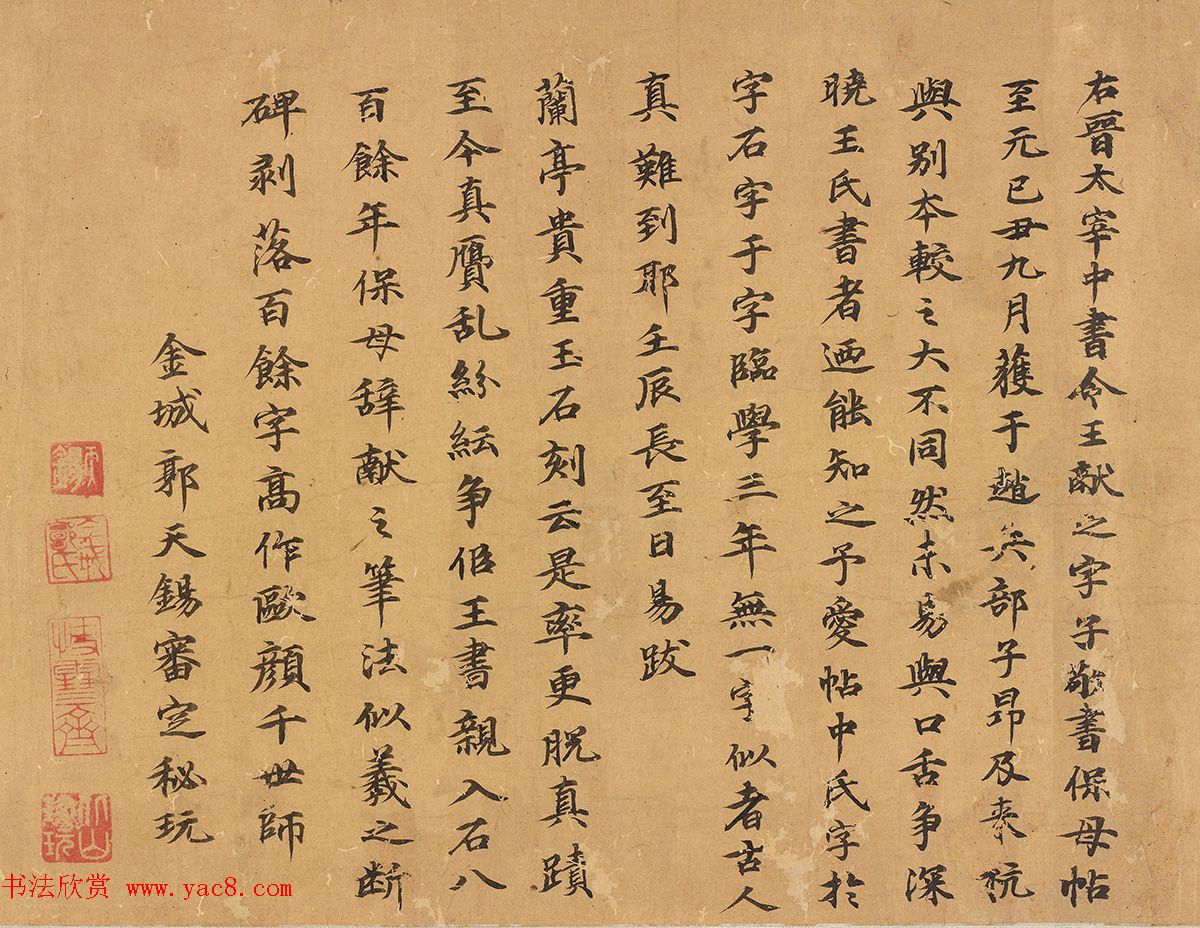 右晉太宰中書令王献之字子敬書保母帖
至元己丑九月獲于趙兵部子昂及來杭
與別本較之大不同然未易與口舌争深
曉王氏書者迺能知之予愛帖中氏字於
字石字于字臨學三年無一字似者古人
真難到耶壬辰長至日易跋
蘭亭貴重玉石刻云是率更脱真蹟
至今真贗乱紛紜争侭王書親入石八
百餘年保母辞献之筆法似羲之断
碑剥落百餘字高作歐顔千世師
金城郭天錫審定秘玩
天錫
金城郭氏
快雪齋
书法欣赏 www.yac8.com